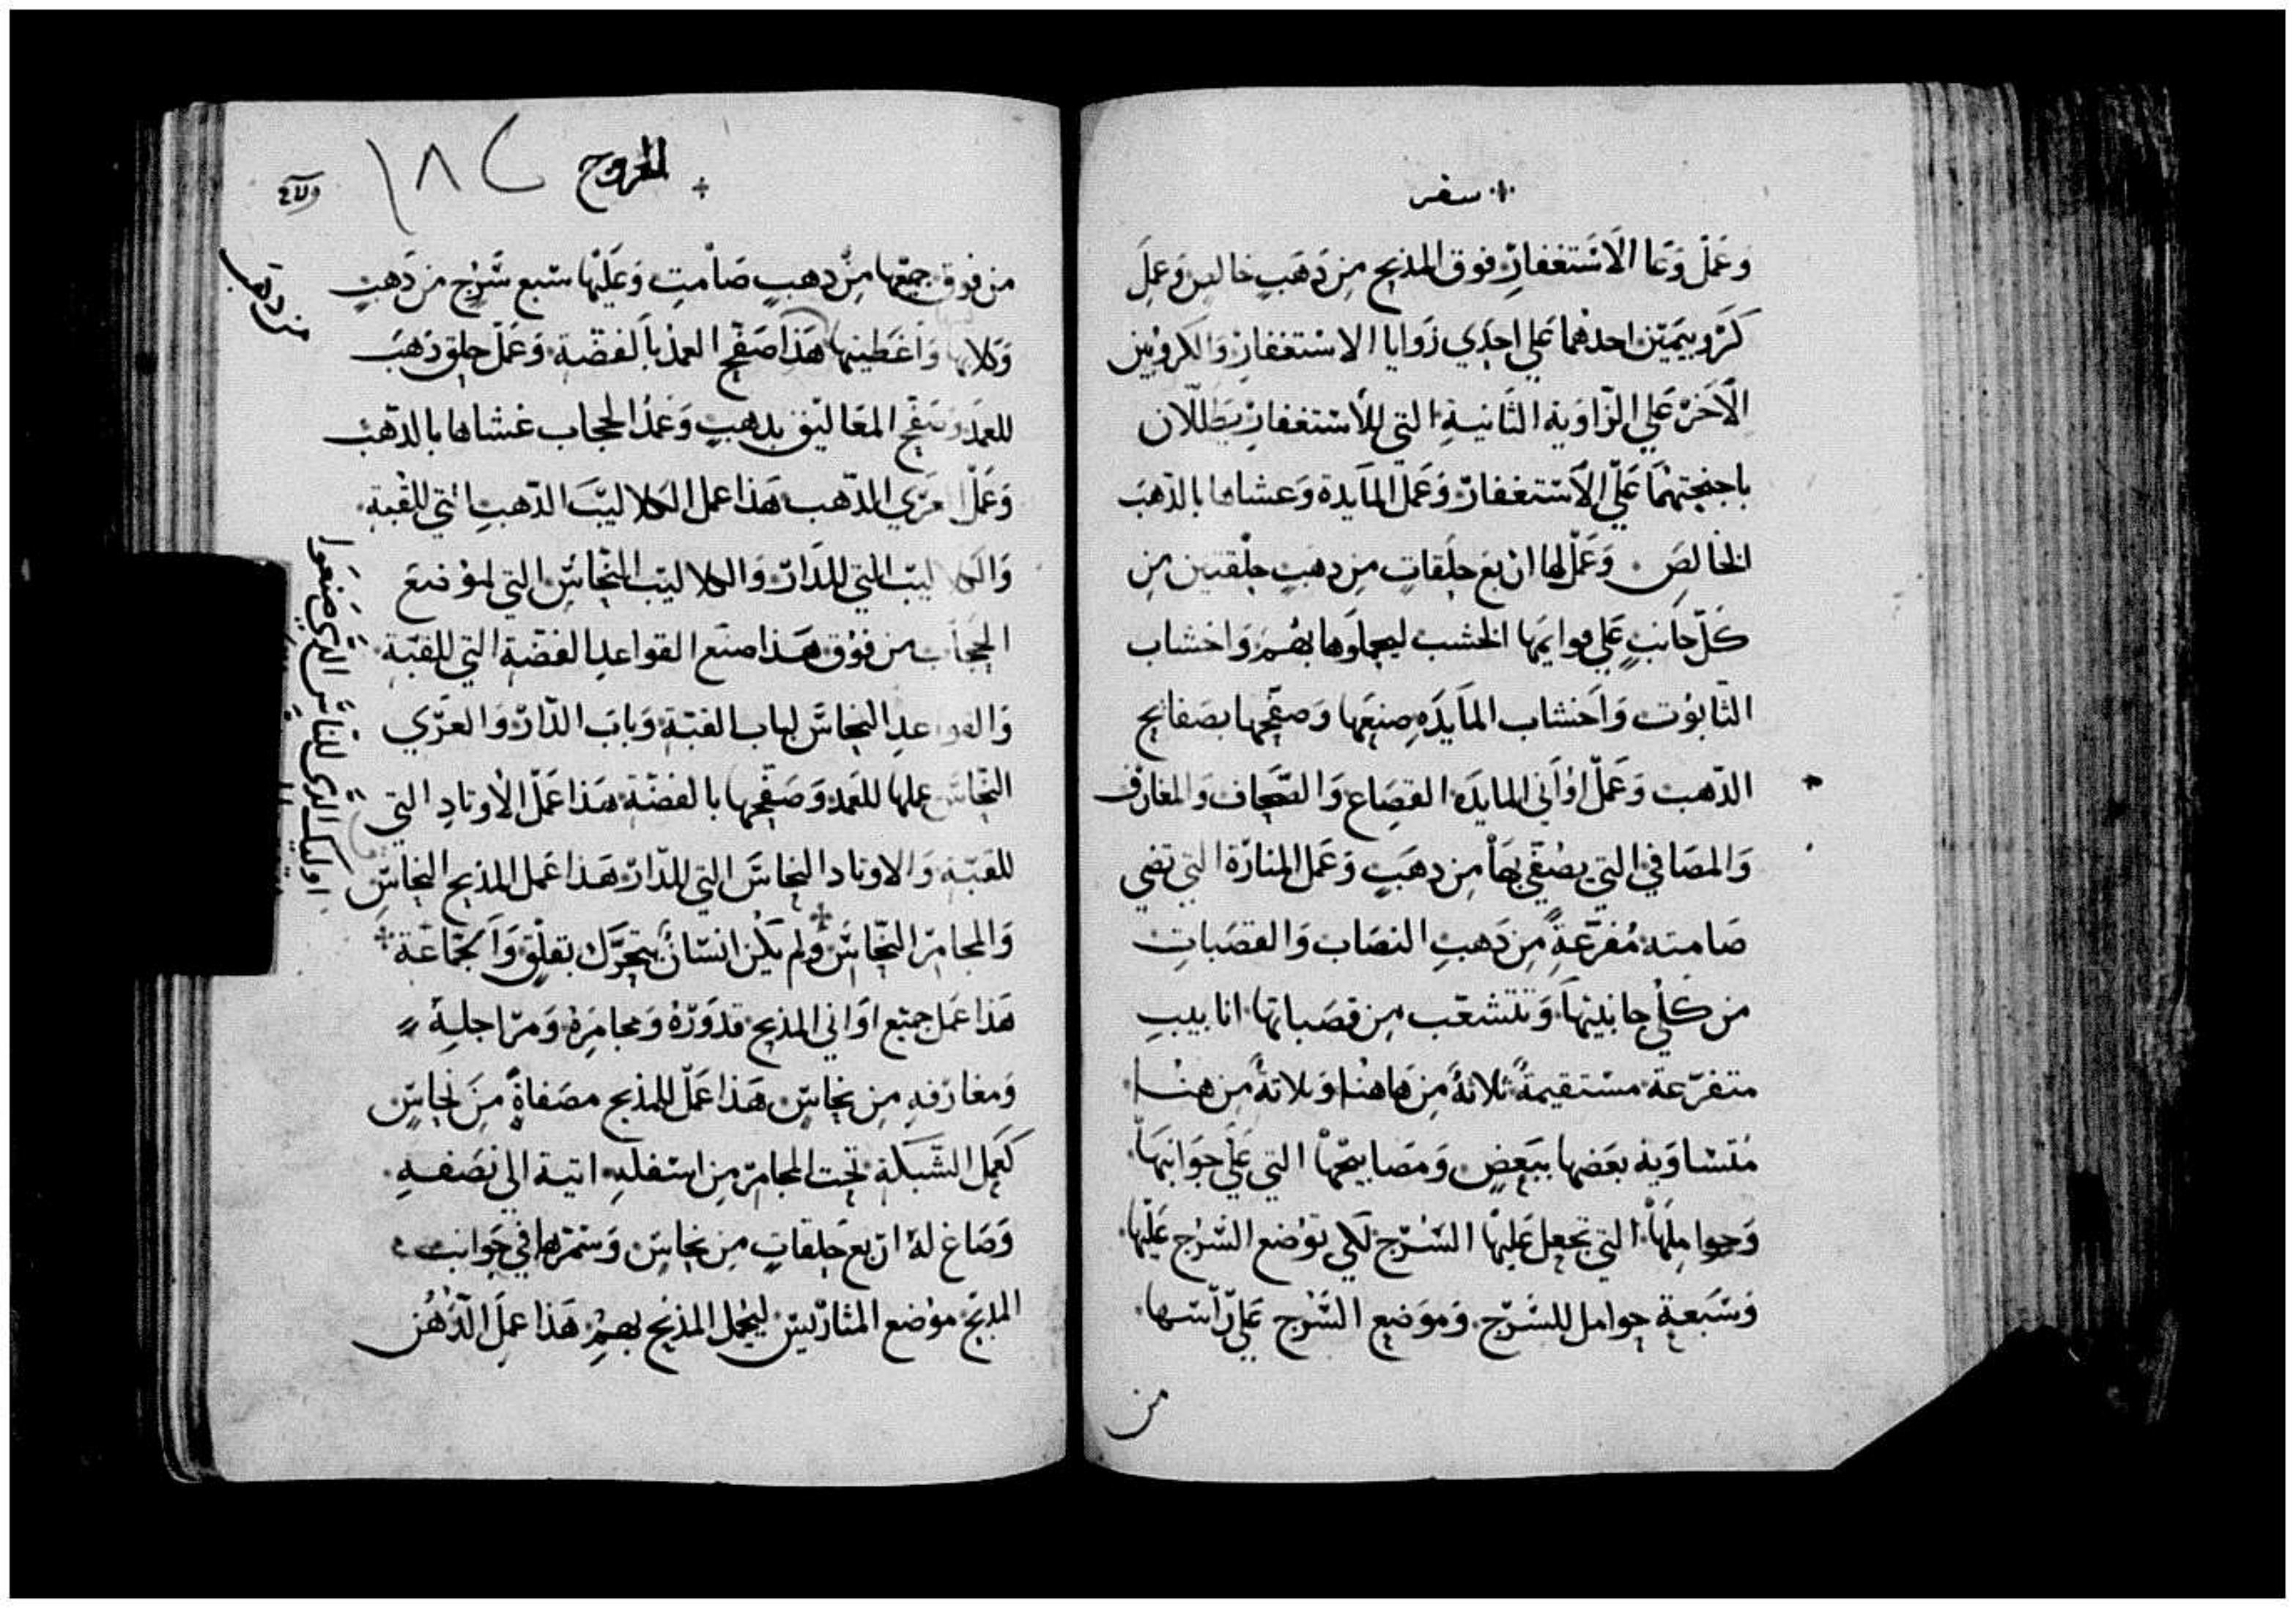 سفر
وَعَمل وَعَا الاَستغفارِ فوق المذبح مِن ذَهَبٍ خالص وَعمل
كَرُوبيمَيْن احدهُما عَلي احدَي زوايا الاستغفارْ وَالكروُبين
الاَخرْ عَلي الزاوَية الثانيةِ التي للأستغفارِ يظللان
باجنحتهمَا عَلي الاَستغفارْ وَعَمل المآيدة وَعشاها بالذهبَ
الخالصَ وَعَمل لها اربَع حلَقاتٍ مِن دهبٍ حلْقتين مِن
كلّ جانبٍ عَلي قوايمها الخشب ليحملوَها بهُم وَاخشاب
التابوُت وَاَخشاب المآيدَهِ صنعَها وَصفحها بصَفايح
الذهب وَعَملّ اوَاَني المايدَه القصَاع وَالصَحَاف وَالمغارف
وَالمصَافي التي يصُفّي بهَا مِن دهَبٍ وَعَمل المنارَة التي تضي
صَامته مُفرّعَةٍ مِن دَهبِ النصَاب وَالقصَباتِ
من كلْي جانبيهَا وَتتشعّب مِن قصَباتها انابيبِ
متفرّعة مسْتقيمةً ثلاثةً مِن هَاهنُا وَثلاثةً مِن هنُا
مُتسْاويَة بعَضها ببَعضٍ وَمصَابيحَهْا التي عَلي جَوَانبهَا
وَحوامِلهَا التي تجعل عَليهْا السُرْج لكي توُضع السُرْج عَليهْا
وَسَبعة حوامل للسَرْج وَموَضع السَرْج عَلي رَاسْها
من
الخروج
١٨٢
من فوق جميعْها مِن دهبٍ صَامْتٍ وَعَليهْا سَبع سَرْج من ذَهبٍ
من دهب
وَكلابها وَاَغطيتها هَذا صَفح العمَد باَلفضّة وَعَمل حلق ذهَب
للعمَد وَصَفح المعَاليق بدهبٍ وَعَمدُ الحجاب غشاها بالذهب
وَعَمل عَرَي الذهب هَذا عمل الكلاليبَ الذهب التي للقبة
وَالكلاليب التي للدَارْ وَالكلاليب النحْاسْ التي لموُضع
الحجَاب من فوُق هَذا صنَع القواعدِ الفضّة التي للقبّة
وَالقواعدِ النحاسَ لباب القبّة وَبابَ الدّارْ وَالعَرّي
النحاسَ عملها للعَمد وَصَفحها بالفضّة هَذا عَمل الأوتادِ التي
للقبّة وَالاوتاد النحاسَ التي للدّارْ هَذا عَمل المذبح النحاسْ
اوليك الذي للناس الذي صنعوا
وَالمجامرْ النحّاسَ وَلم يكُن انسْانٌ يتحَرّك بقلْق وَالجمَاعَة
هَذا عمَل جميَع اوَاني المذبح قدوَرْهُ وَمجامرَهُ وَمرَاجلهُ
وَمغارفه مِن نحاسْ هَذا عَمل للمذبح مصَفاةً مِنَ نحاسٍ
كَعمل الشَبكةِ تحت المجامرْ مِن اسَفله اتية الي نصَفهِ
وَصَاغ لهُ ارْبع حَلقاتٍ مِن نحاسَ وَسَمّرها في جَوانب
المذبَح موُضع المتارْيسْ ليحُمل المذبح بهمُ هَذا عمل الدّهُن